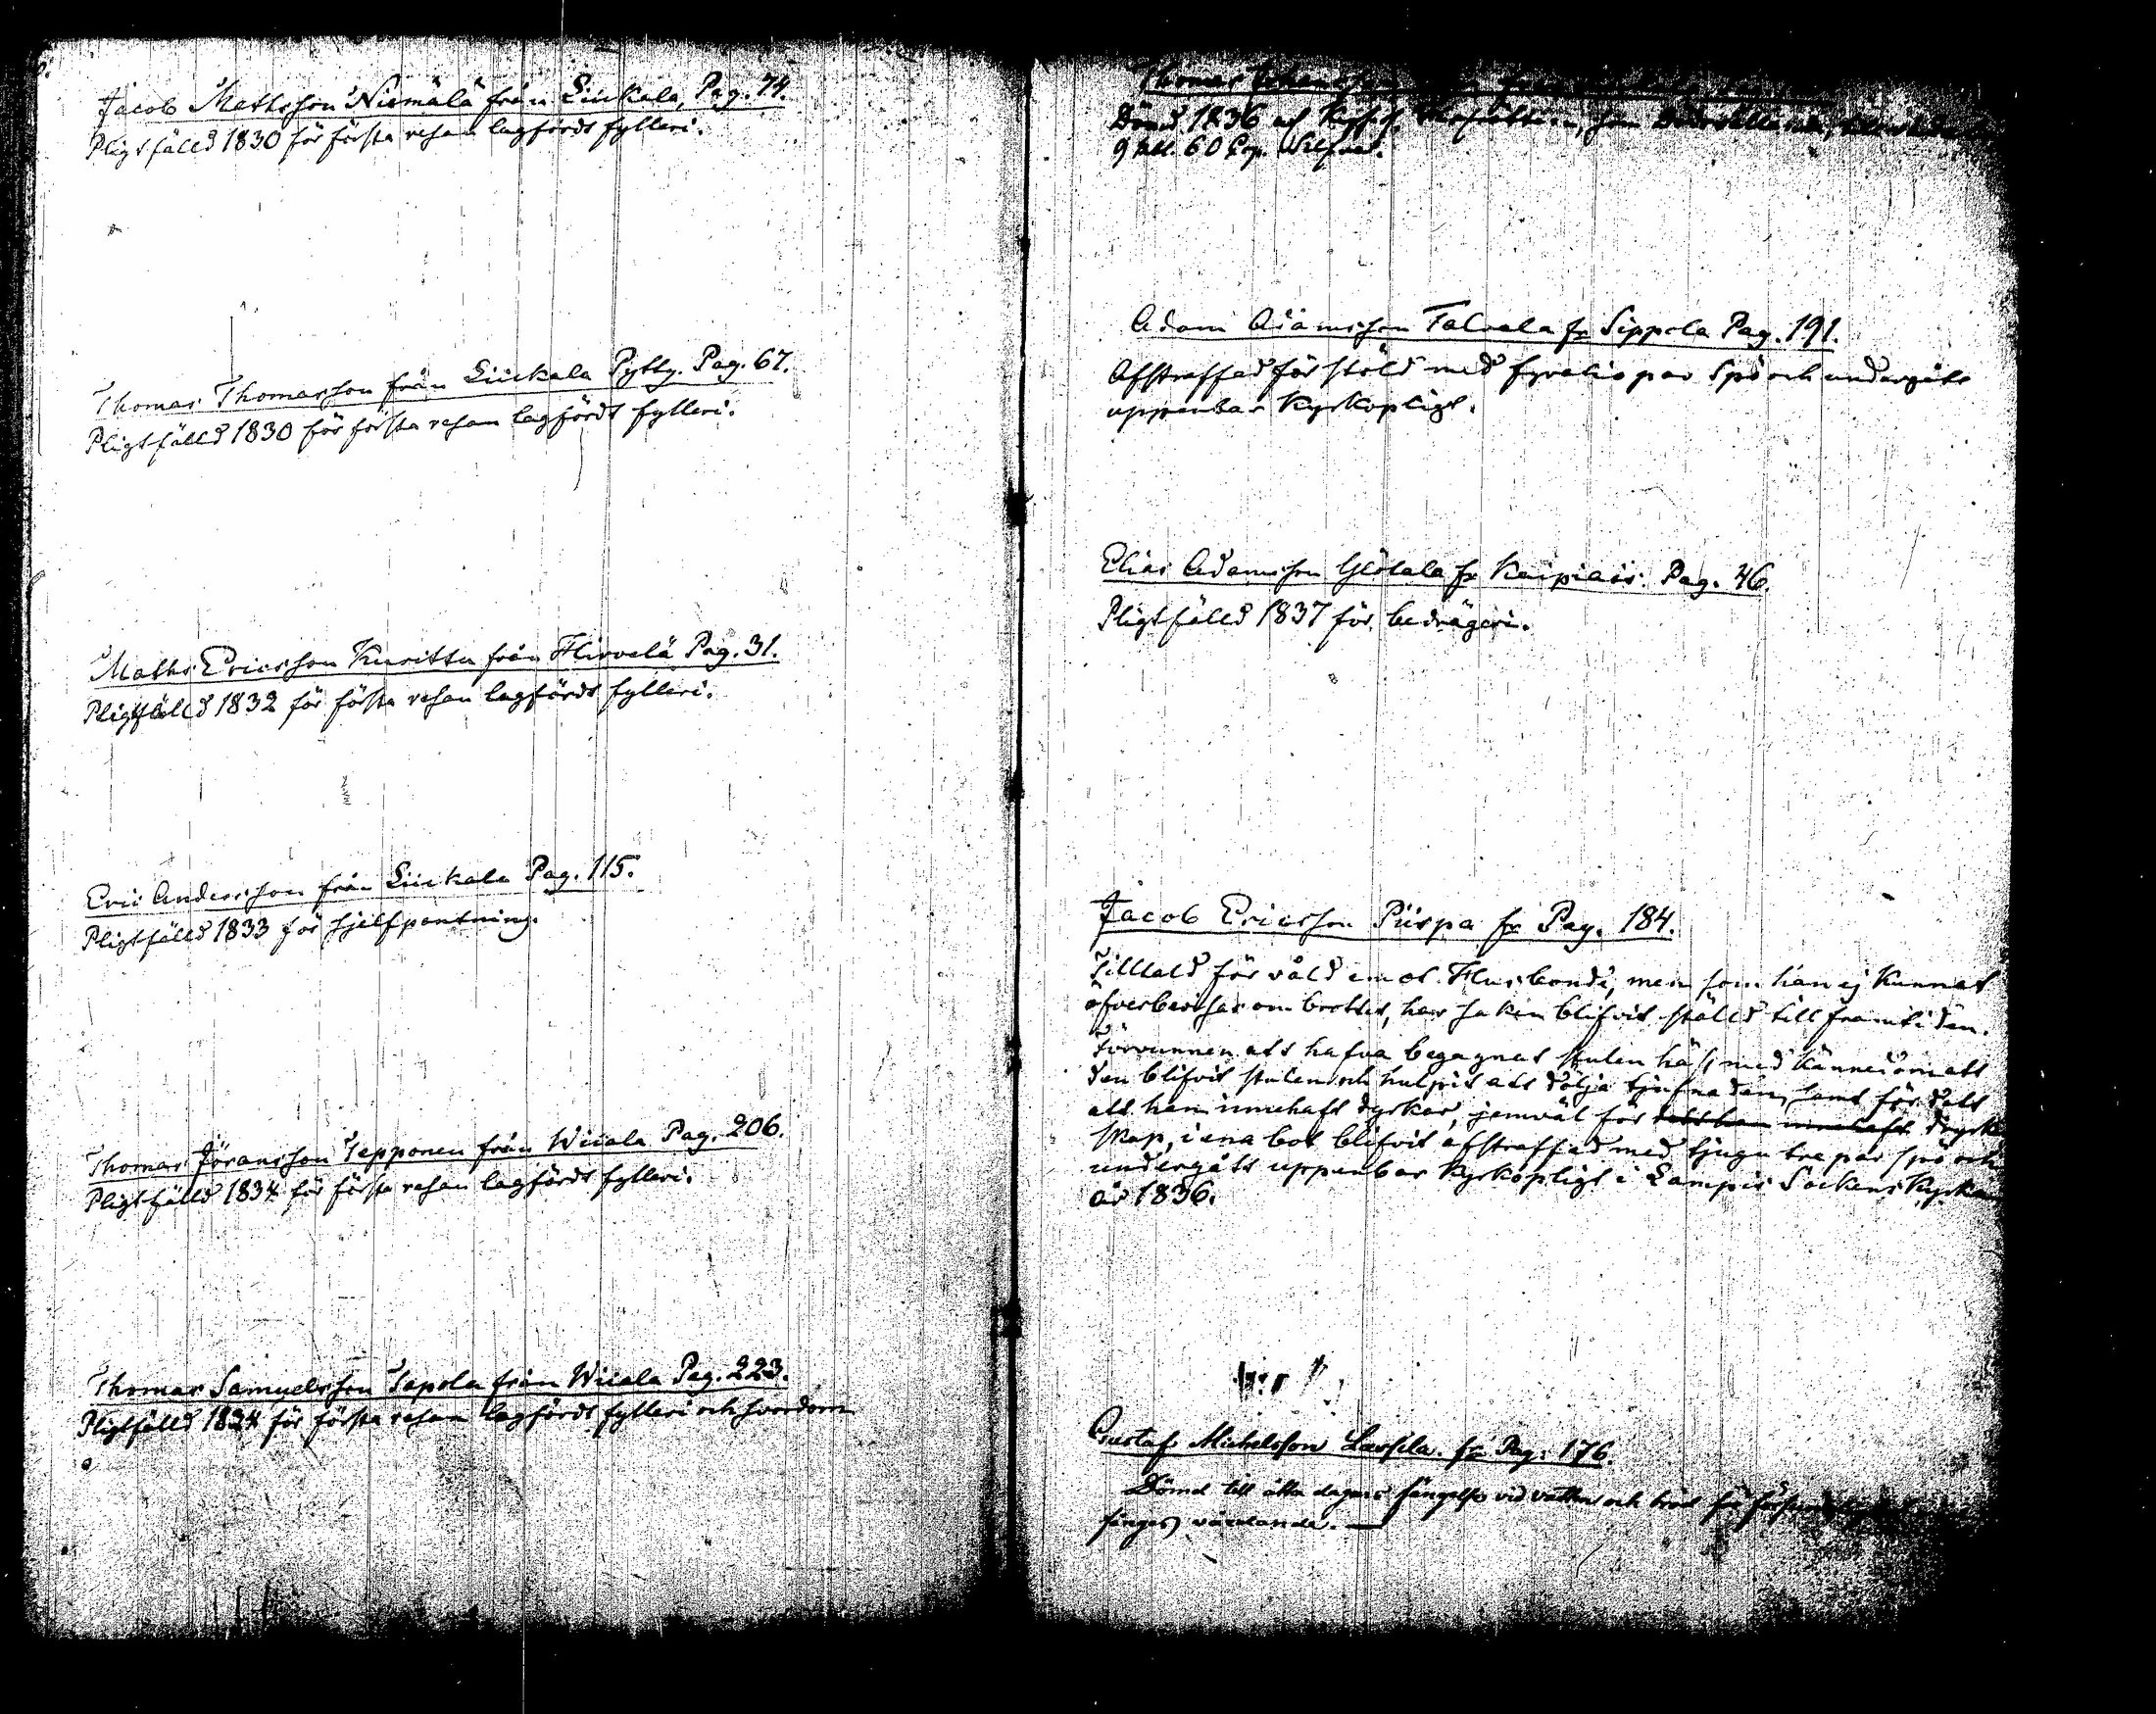 Jacob Mathsson Niemälä från Liickala, Pag. 74.
Pligtfälld 1830 för första resan lagfördt fylleri.
Thomas Thomasson från Liickala Pyttg. Pag. 67.
Pligtfälld 1830 för första resan lagfördt fylleri.
Maths Ericsson Kuritta från Hirvelä Pag. 31.
Pligtfälld 1832 för första resan lagfördt fylleri.
Eric Andersson från Liickala Pag. 115.
Pligtfälld 1833 för sjelfpantning.
Thomas Jöransson Tepponen från Wiiala Pag. 206.
Pligtfälld 1834 för första resan lagfördt fylleri.
Thomas Samuelsson Tapola från Wiiala Pag. 223.
Pligtfälld 1834 för första resan lagfördt fylleri och svordom
Thomas
Dömd 1836 af
9 60 Cop. Silfver.
Adam Adamsson Talvela fr Sippola Pag. 191.
Afstraffad för stöld med fyratio par Spö och undergått
uppenbar Kyrkopligt.
Elias Adamsson fr Kaipiais. Pag. 46.
Pligtfälld 1837 för bedrägeri.
Jacob Ericsson Piispa fr Pag. 184.
Tilltald för våld emot Husbonde, men som han ej kunnat
öfverbevisas om brottet, har saken blifvit ställd till framtiden.
Förvunnen att hafva begagnat stulen häst med kännedom att
den blifvit stulen och hulpit att dölja tjufnaden, samt för det
att han innehaft dyrkar, jemväl för dett han innehaft dryck
skap, i ena bot blifvit afstraffad med tjugu tre par spö och
undergått uppenbar Kyrkopligt i Lampis Sockens Kyrka
år 1836.
Gustaf Michelsson Lassila. fr Pag. 176.
Dömd till åtta dagars fängelse vid vatten och bröd för
fånges vårdande. —